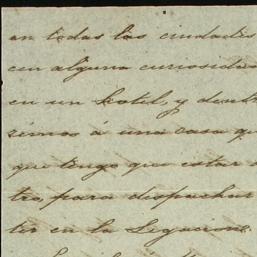 en todas las ciudades
con alguna curiosidad
en un hotel, y dentr
remos á una casa qu
que tengo que estar a
tro, para despachar
ter en la Legacion.